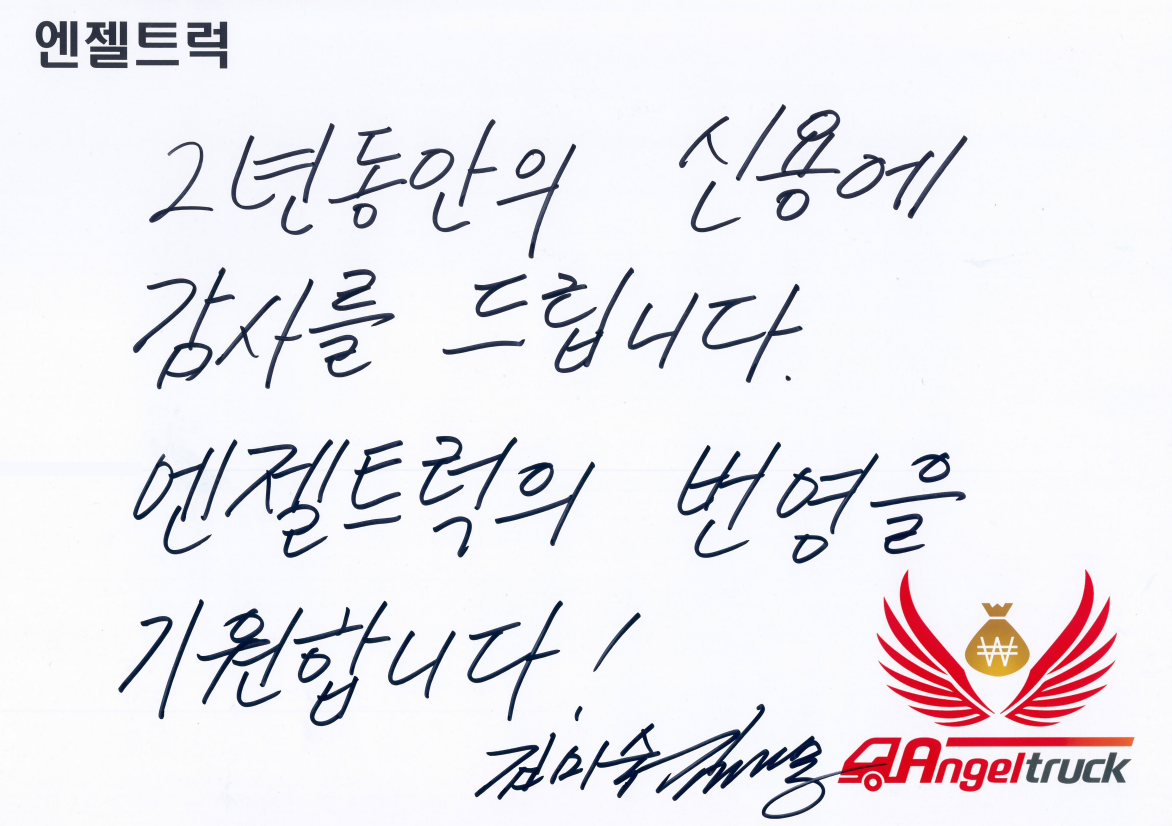 엔젤트럭
2년동안의 신용에
감사를 드립니다.
엔젤트럭의 번영을
기원합니다!
김미숙
Angeltruck